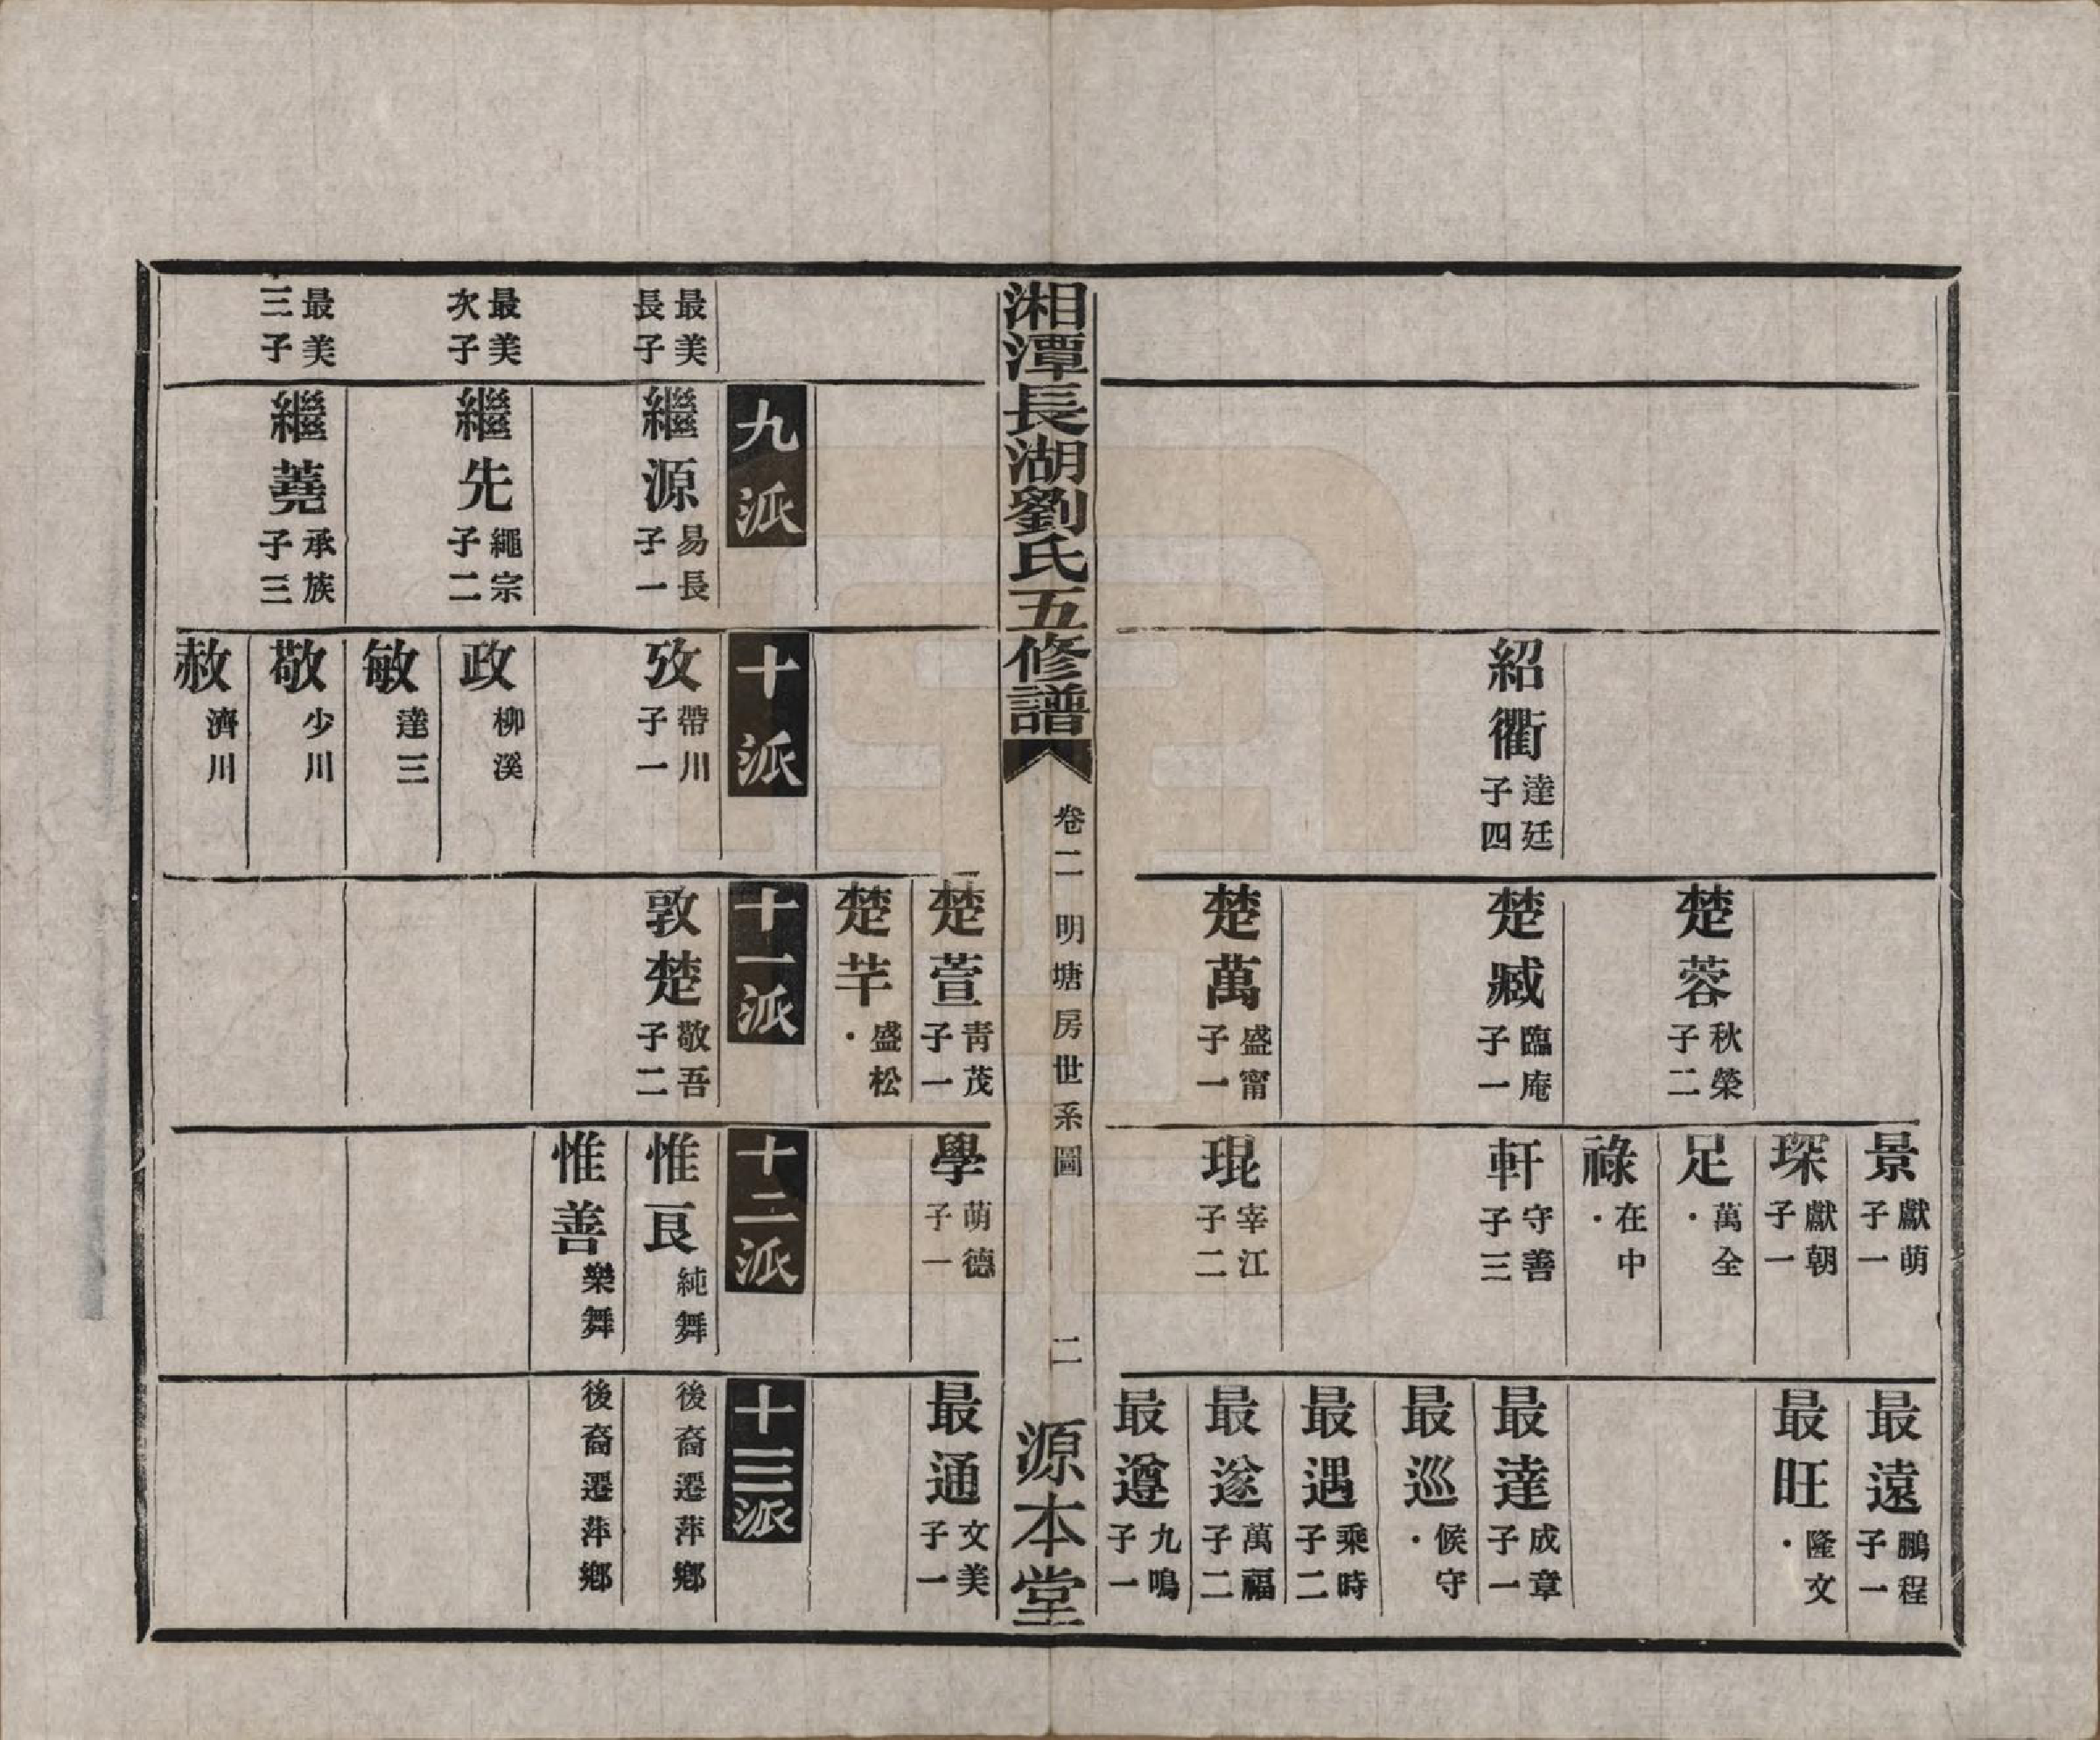 紹衢 達廷 子四
楚蓉 秋榮 子二
楚臧 臨庵 子一
楚萬 盛甯 子一
景 獻萌 子一
琛 獻朝 子一
足 萬全 ·
祿 在中 ·
軒 守善 子三
琨 宰江 子二
最遠 鵬程 子一
最旺 隆文 ·
最達 成章 子一
最巡 候守 ·
最遇 乘時 子二
最遂 萬福 子二
最遵 九鳴 子一
湘潭長湖劉氏五修譜 卷二 明塘房世系圖 二 源本堂
楚萱 青茂 子一
楚芊 盛松 ·
學 萌德 子一
最通 文美 子一
最美長子
最美次子
最美三子
九派
繼源 易長 子一
繼先 繩宗 子二
繼蕘 承族 子三
十派
攷 帶川 子一
政 柳溪
敏 達三
敬 少川
赦 濟川
十一派
敦楚 敬吾 子二
十二派
惟良 純舞
惟善 樂舞
十三派
後裔遷萍鄉
後裔遷萍鄉